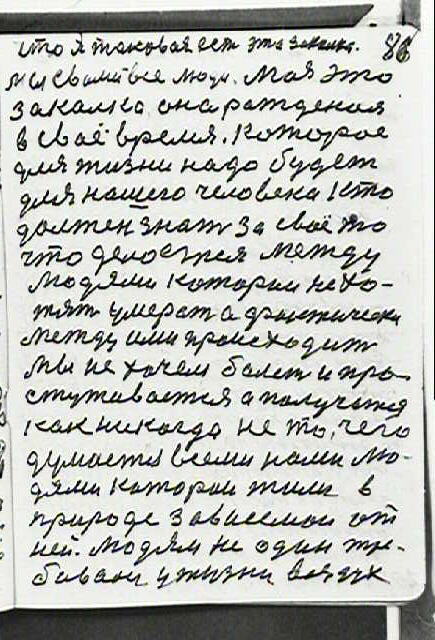 что я таковая есть эта закалка. 86
мы с вами все люди. Моя это
закалка, она рожденая
в своё время. Которое
для жизни надо будет
для нашего человека. Кто
должен знат за своё то
что делоется между
людями которои не хо-
тят умерат а фактически
между ими происходит
мы не хочем болет и про-
стуживается а получится
как никогда не то, чего
думается всеми нами лю-
дями которои жили в
природе зависемои от
ней. Людям не один тре-
бивал у жизни воздух